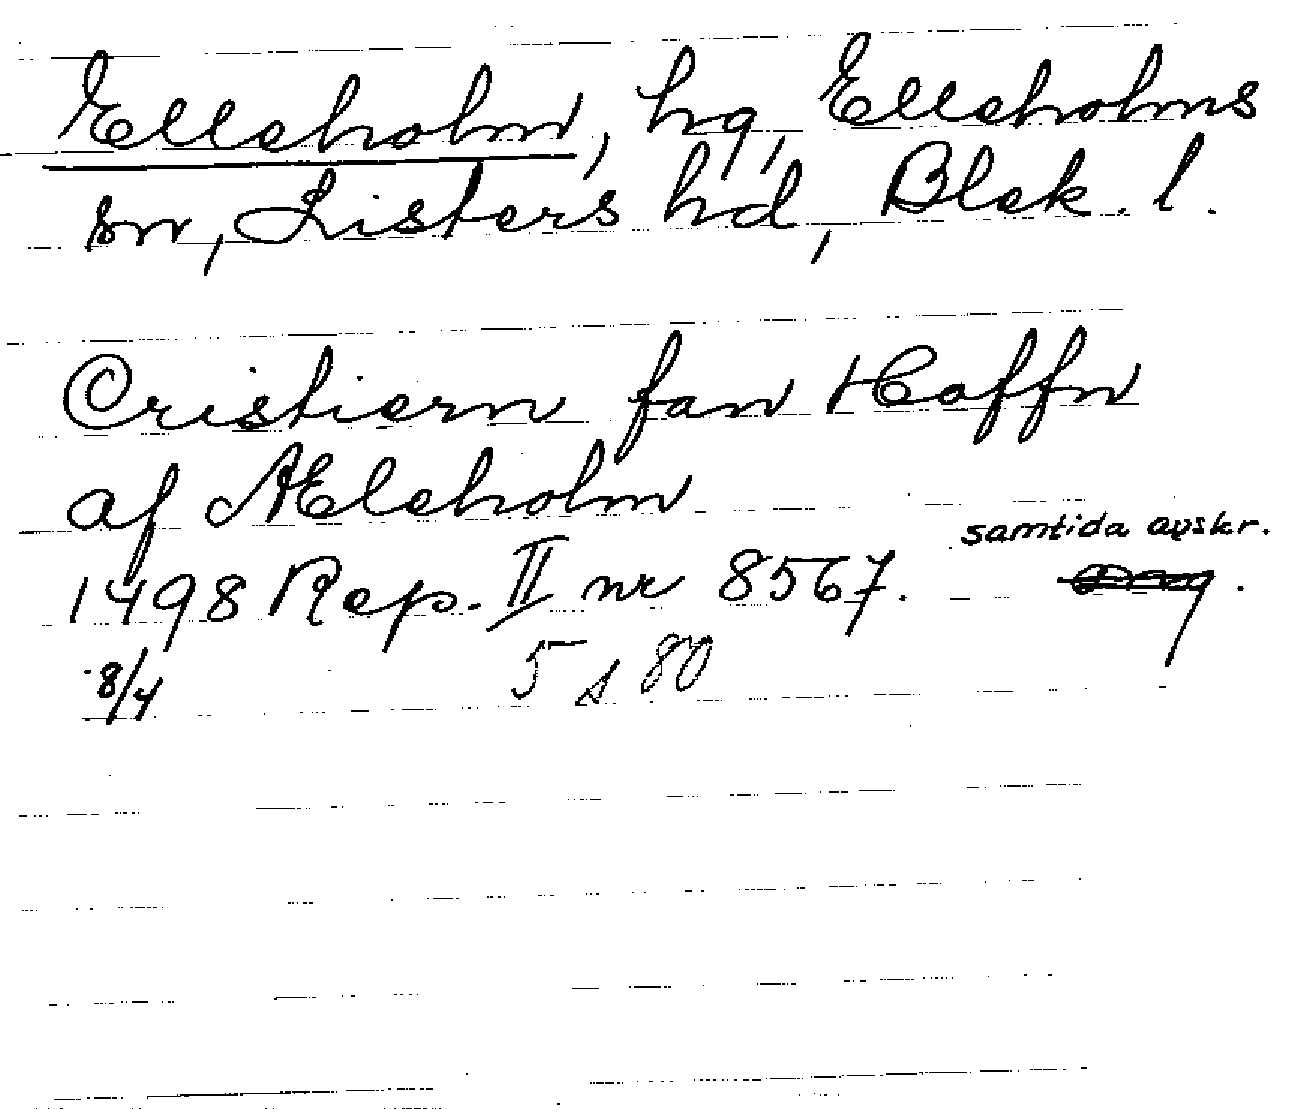 Elleholm, hg, Elleholms
sn, Listers hd, Blek. l.
Cristiern fan Haffn
af Æleholm
samtida avskr.
1498 Rep. II nr 8567.
8/4 5 s 80